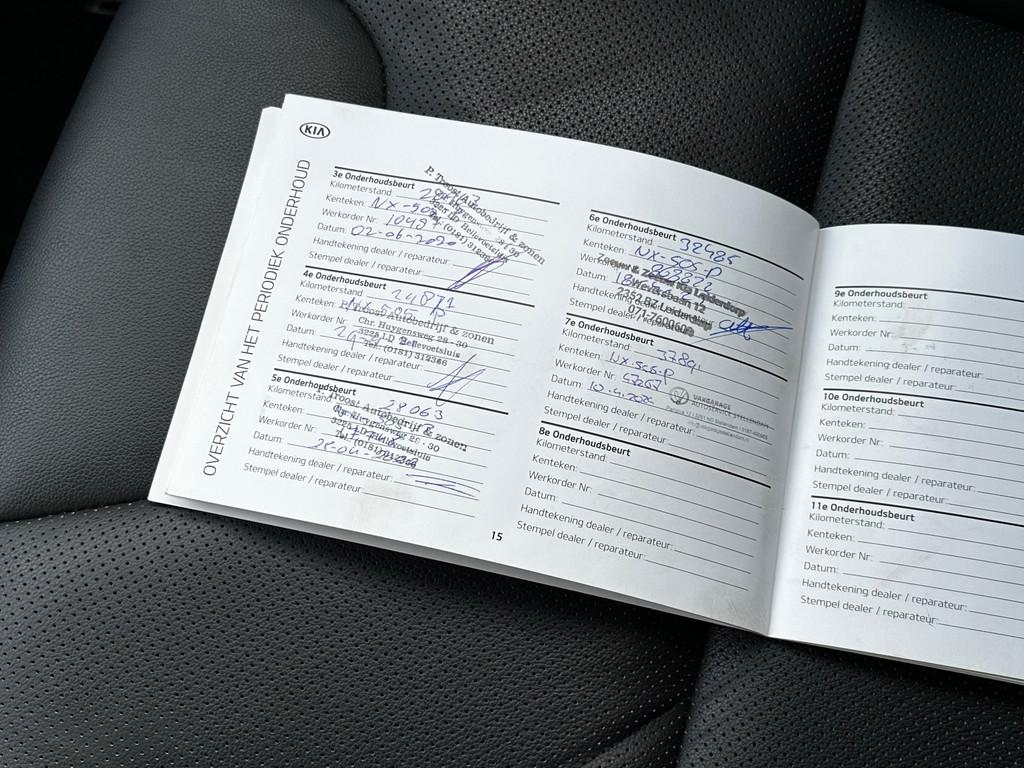 KIA
OVERZICHT VAN HET PERIODIEK ONDERHOUD
3e Onderhoudsbeurt
Kilometerstand:
Kenteken: NX-505-P
Werkorder Nr: 10484
Datum: 02-06-2020
Handtekening dealer / reparateur:
Stempel dealer / reparateur:
P. Troost Autobedrijf & zonen
Chr. Huygensweg 28 - 30
3225 LD Hellevoetsluis
Tel. (0181) 312366
4e Onderhoudsbeurt
Kilometerstand: 24871
Kenteken: NX-505-P
Werkorder Nr:
Datum:
Handtekening dealer / reparateur:
Stempel dealer / reparateur:
P. Troost Autobedrijf & zonen
Chr. Huygensweg 28 - 30
3225 LD Hellevoetsluis
Tel. (0181) 312366
5e Onderhoudsbeurt
Kilometerstand: 28063
Kenteken:
Werkorder Nr:
Datum: 28-04-
Handtekening dealer / reparateur:
Stempel dealer / reparateur:
P. Troost Autobedrijf & zonen
Chr. Huygensweg 28 - 30
3225 LD Hellevoetsluis
Tel. (0181) 312366
15
6e Onderhoudsbeurt
Kilometerstand: 32485
Kenteken: NX-505-P
Datum:
Handtekening dealer / reparateur:
Stempel dealer / reparateur:
Zeeuw & Zeeuw Kia Leiderdorp
Weversbaan 12
2352 BZ Leiderdorp
071-7600600
7e Onderhoudsbeurt
Kilometerstand:
Kenteken: NX-505-P
Werkorder Nr:
Datum: 10.4.
Handtekening dealer / reparateur:
Stempel dealer / reparateur:
VAKGARAGE
AUTOSERVICE STELLENDAM
8e Onderhoudsbeurt
Kilometerstand:
Kenteken:
Werkorder Nr:
Datum:
Handtekening dealer / reparateur:
Stempel dealer / reparateur:
9e Onderhoudsbeurt
Kilometerstand:
Kenteken:
Werkorder Nr:
Datum:
Handtekening dealer / reparateur:
Stempel dealer / reparateur:
10e Onderhoudsbeurt
Kilometerstand:
Kenteken:
Werkorder Nr:
Datum:
Handtekening dealer / reparateur:
Stempel dealer / reparateur:
11e Onderhoudsbeurt
Kilometerstand:
Kenteken:
Werkorder Nr:
Datum:
Handtekening dealer / reparateur:
Stempel dealer / reparateur: